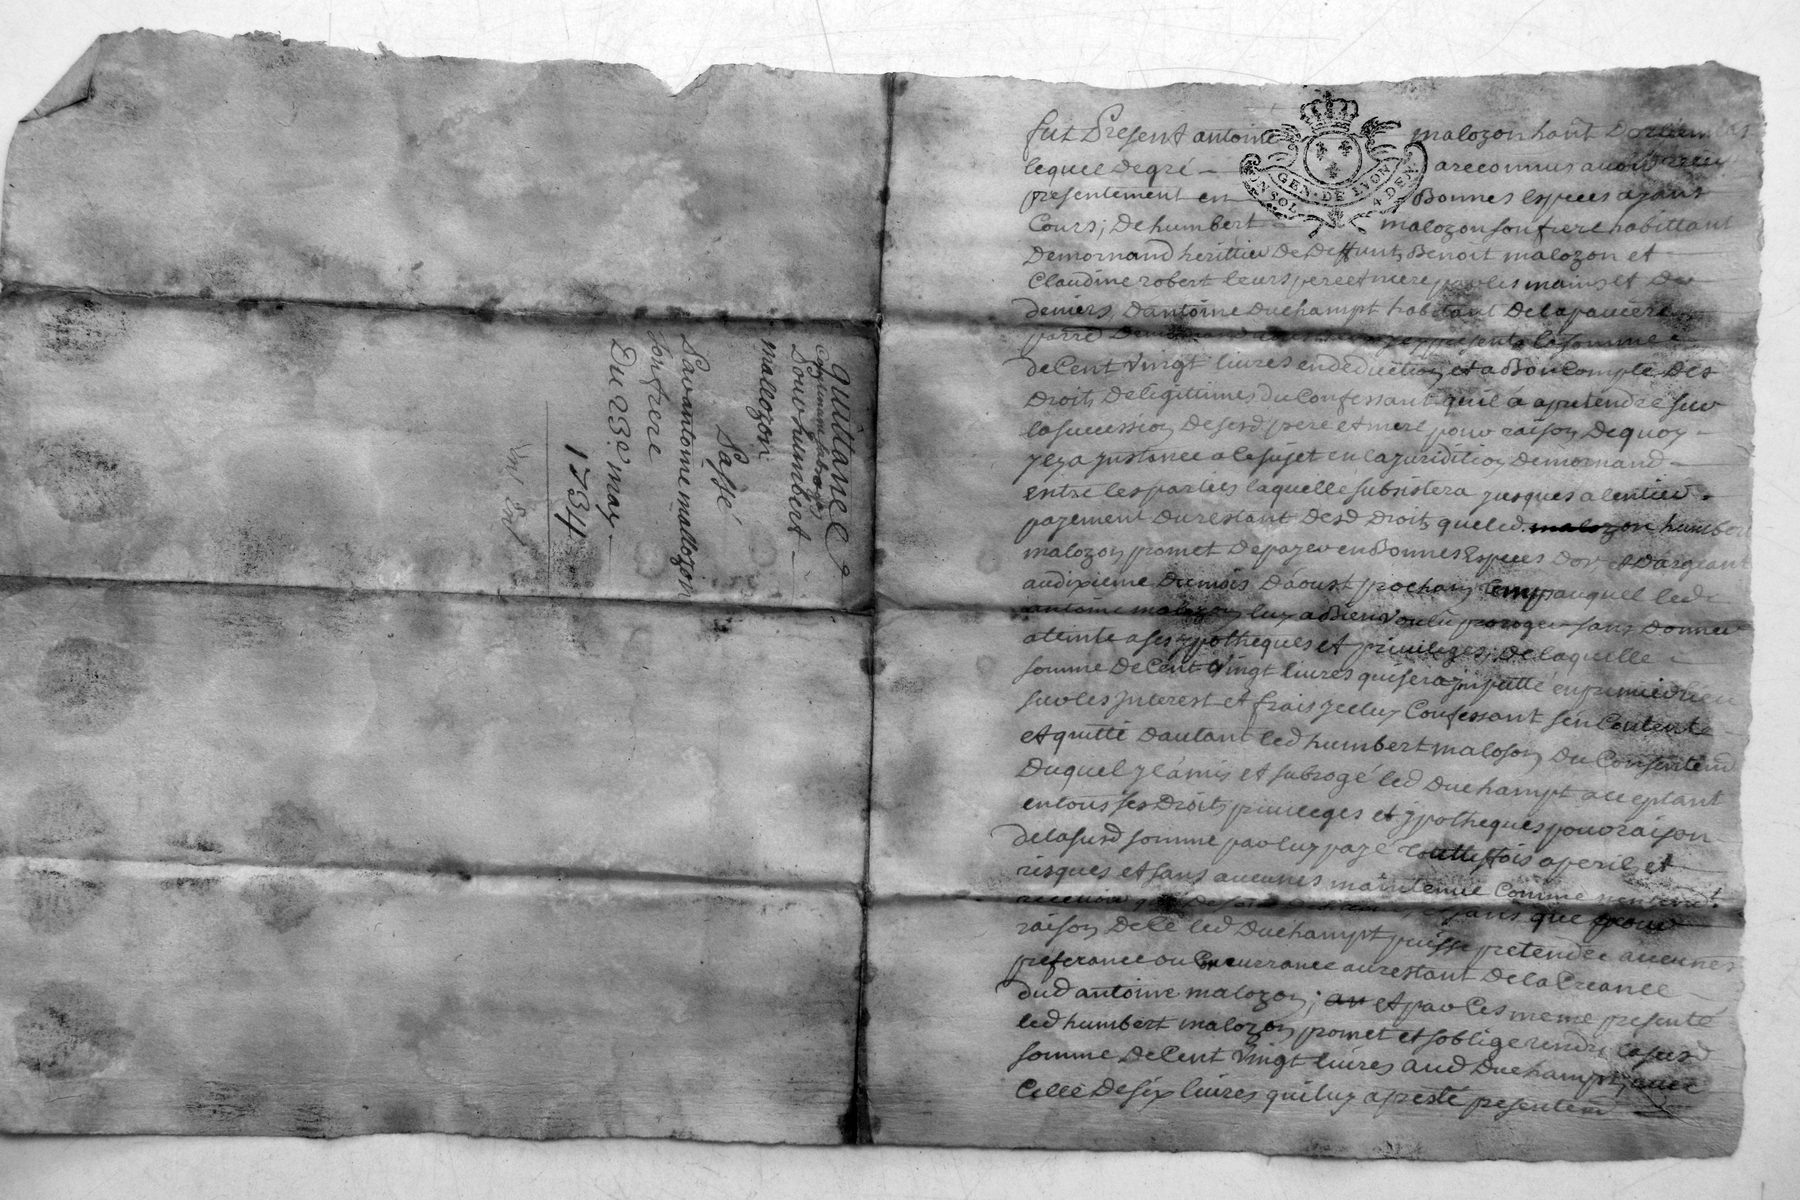 quittance
Comprenant subrogaon
Pour humbert
malozon
Passé
Par antoine mallozon
son frere
Du 23e. may
1734
GEN. DE LYON
UN SOL 4 DEN
fut Present antoine malozon hañt
lequel de gré a reconnus avoir receu
presentement en Bonnes Especes ayant
Cours, de humbert malozon son frere habittant
de mornand herittier de Deffunts Benoit malozon et
Claudine robert leurs pere et mere par les mains et des
deniers, d'antoine duchampt habitant de la
present la somme
de Cent Vingt livres en deduction et a Bon Compte des
Droits de legittimes du Confessant qu'il á a pretendre sur
la succession de sesd pere et mere pour raison de quoy
yl y a ynstance a ce sujet en la juridiction de mornand
entre les parties laquelle subsistera jusques a l'entier
payement du restant desd Droits que led. malozon humbert
malozon promet de payer en Bonnes Especes d'or et d'argeant
au dixieme du mois d'aoust prochain temp auquel led
antoine malozon luy a Bien Voulu proroger sans donner
ateinte a ses ypotheques et privileges, de laquelle
somme de Cent Vingt livres qui sera ymputté en premier lieu
sur les ynterest et frais yceluy Confessant s'en Contente
et quitte d'autant led humbert maloson du Consentemd
duquel yl á mis et subrogé led duchampt acceptant
en tous ses Droits privileges et ypotheques pour raison
de la susd somme par luy payé touttesfois a peril et
risques et sans aucunes maintenue comme
sans que pour
raison de Ce led duchampt puisse pretendre aucunes
preferance ou Concurrance au restant de la Creance
dud antoine malozon; an et par Ces meme presente
led humbert malozon promet et s'oblige rendre la susd
somme de Cent Vingt livres aud duchampt, avec
Celle de six livres qui luy a presté presentemd